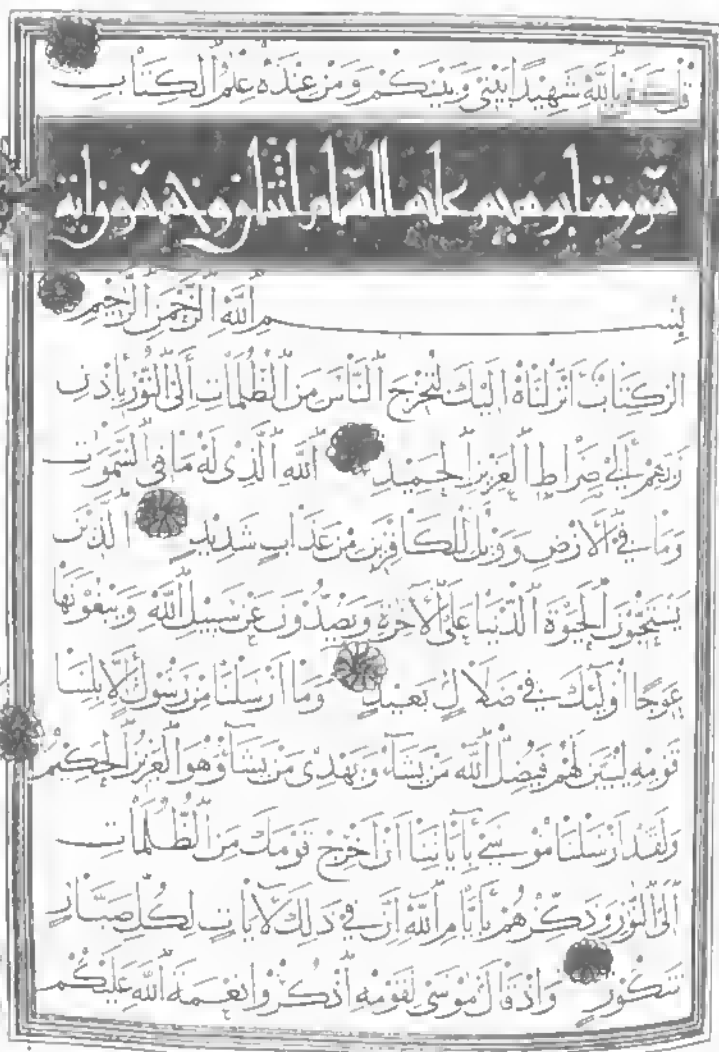 قل كفى بالله شهيدا بيني وبينكم ومن عنده علم الكتاب
سورة ابرهيم عليه السلام اثنان وخمسون اية
بسم الله الرحمن الرحيم
الر كتاب انزلناه اليك لتخرج الناس من الظلمات الى النور باذن
ربهم الى صراط العزيز الحميد الله الذي له ما في السموت
وما في الارض وويل للكافرين من عذاب شديد الذين
يستحبون الحيوة الدنيا على الآخرة ويصدون عن سبيل الله ويبغونها
عوجا اولئك في ضلال بعيد وما ارسلنا من رسول الا بلسان
قومه ليبين لهم فيضل الله من يشاء ويهدي من يشاء وهو العزيز الحكيم
ولقد ارسلنا موسى بآياتنا ان اخرج قومك من الظلمات
الى النور وذكرهم بايام الله ان في ذلك لآيات لكل صبار
شكور واذ قال موسى لقومه اذكروا نعمة الله عليكم